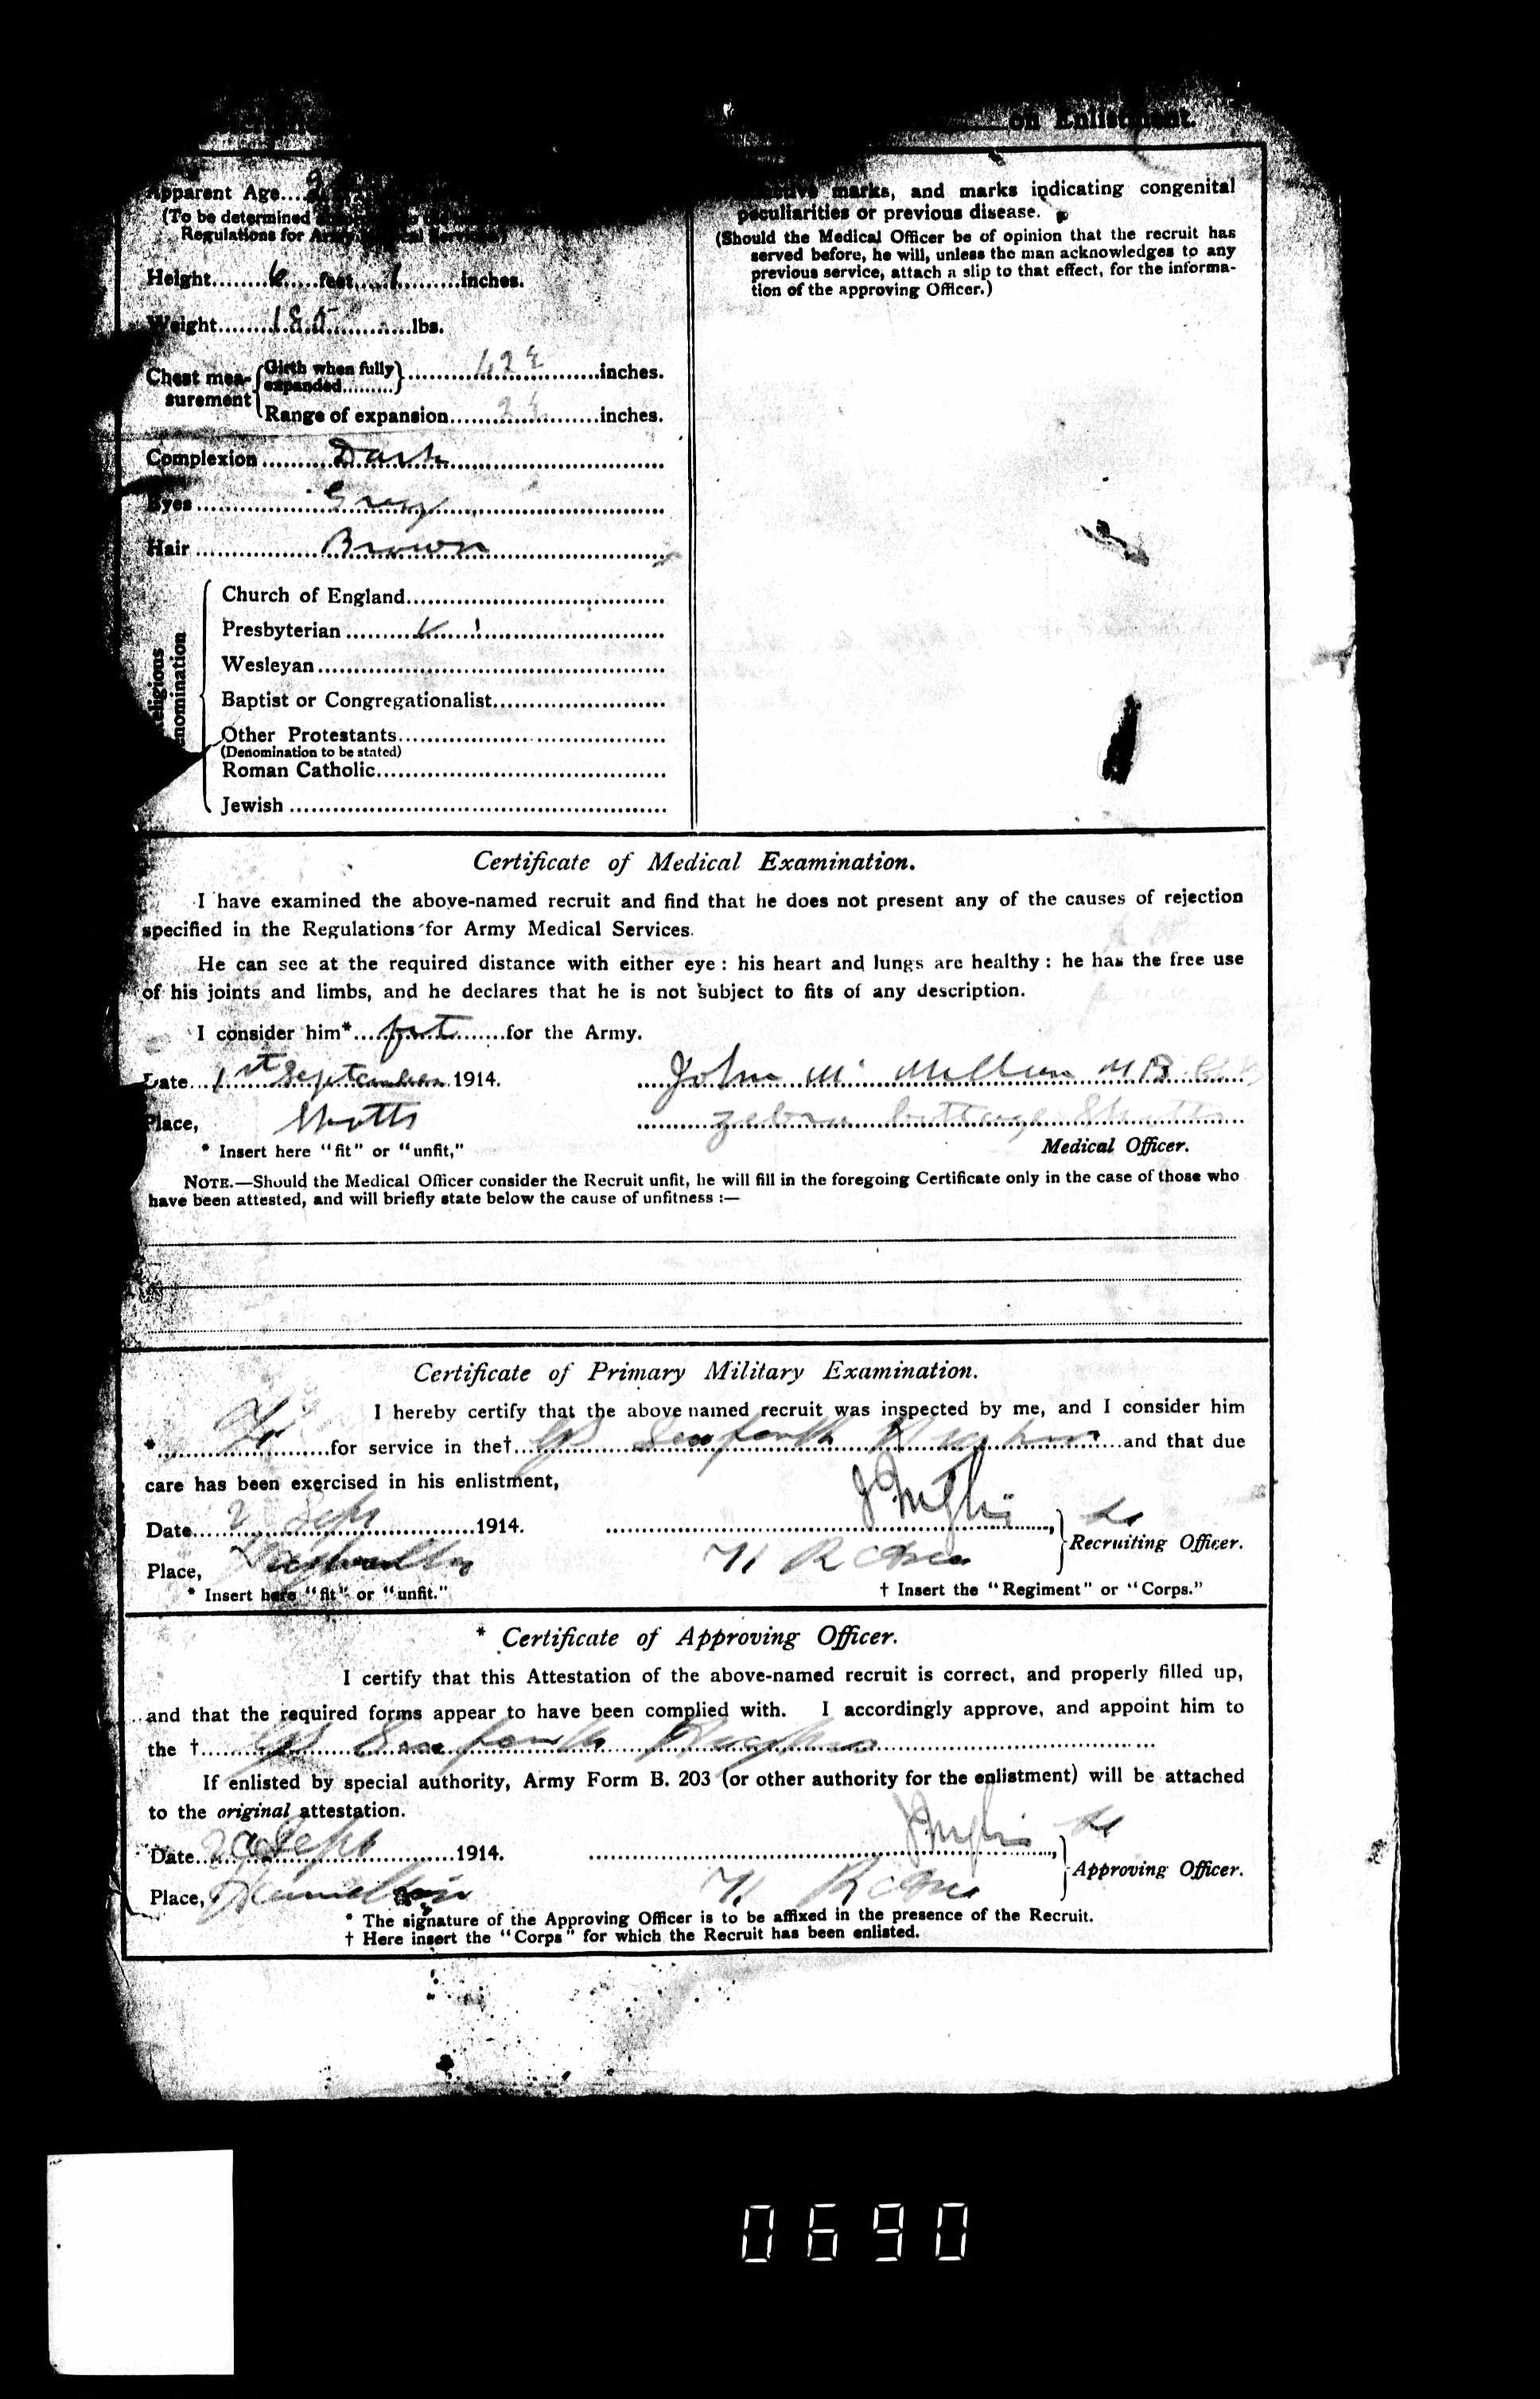 on Enlistment.
Apparent Age
(To be determined
Regulations for Army Medical Services)
Height........6.....feet.....1.........inches.
Weight........185............lbs.
Chest mea-surement { Girth when fully expanded......... } ..........................inches.
Range of expansion.....................inches.
Complexion..........Dark..............................
Eyes..................Grey..............................
Hair.................Brown.........................
Religious Denomination
Church of England....................................
Presbyterian
Wesleyan................................................
Baptist or Congregationalist........................
Other Protestants.....................................
(Denomination to be stated)
Roman Catholic........................................
Jewish ....................................................
marks, and marks indicating congenital
peculiarities or previous disease.
(Should the Medical Officer be of opinion that the recruit has
served before, he will, unless the man acknowledges to any
previous service, attach a slip to that effect, for the informa-
tion of the approving Officer.)
Certificate of Medical Examination.
I have examined the above-named recruit and find that he does not present any of the causes of rejection
specified in the Regulations for Army Medical Services.
He can see at the required distance with either eye : his heart and lungs are healthy : he has the free use
of his joints and limbs, and he declares that he is not subject to fits of any description.
I consider him*....fit.......for the Army.
Date...1st September 1914.
John Mc Millan M.B.
Place, Shotts
zebra Cottage Shotts
* Insert here "fit" or "unfit,"
Medical Officer.
NOTE.—Should the Medical Officer consider the Recruit unfit, he will fill in the foregoing Certificate only in the case of those who
have been attested, and will briefly state below the cause of unfitness :—
Certificate of Primary Military Examination.
I hereby certify that the above named recruit was inspected by me, and I consider him
*....................for service in the†... Seaforth ...and that due
care has been exercised in his enlistment,
Date... 2 Sept ...1914.
Recruiting Officer.
Place,
* Insert here "fit" or "unfit."
† Insert the "Regiment" or "Corps."
* Certificate of Approving Officer.
I certify that this Attestation of the above-named recruit is correct, and properly filled up,
and that the required forms appear to have been complied with. I accordingly approve, and appoint him to
the †... Seaforth
If enlisted by special authority, Army Form B. 203 (or other authority for the enlistment) will be attached
to the original attestation.
Date... Sept ...1914.
Approving Officer.
Place, Hamilton
* The signature of the Approving Officer is to be affixed in the presence of the Recruit.
† Here insert the "Corps" for which the Recruit has been enlisted.
0690